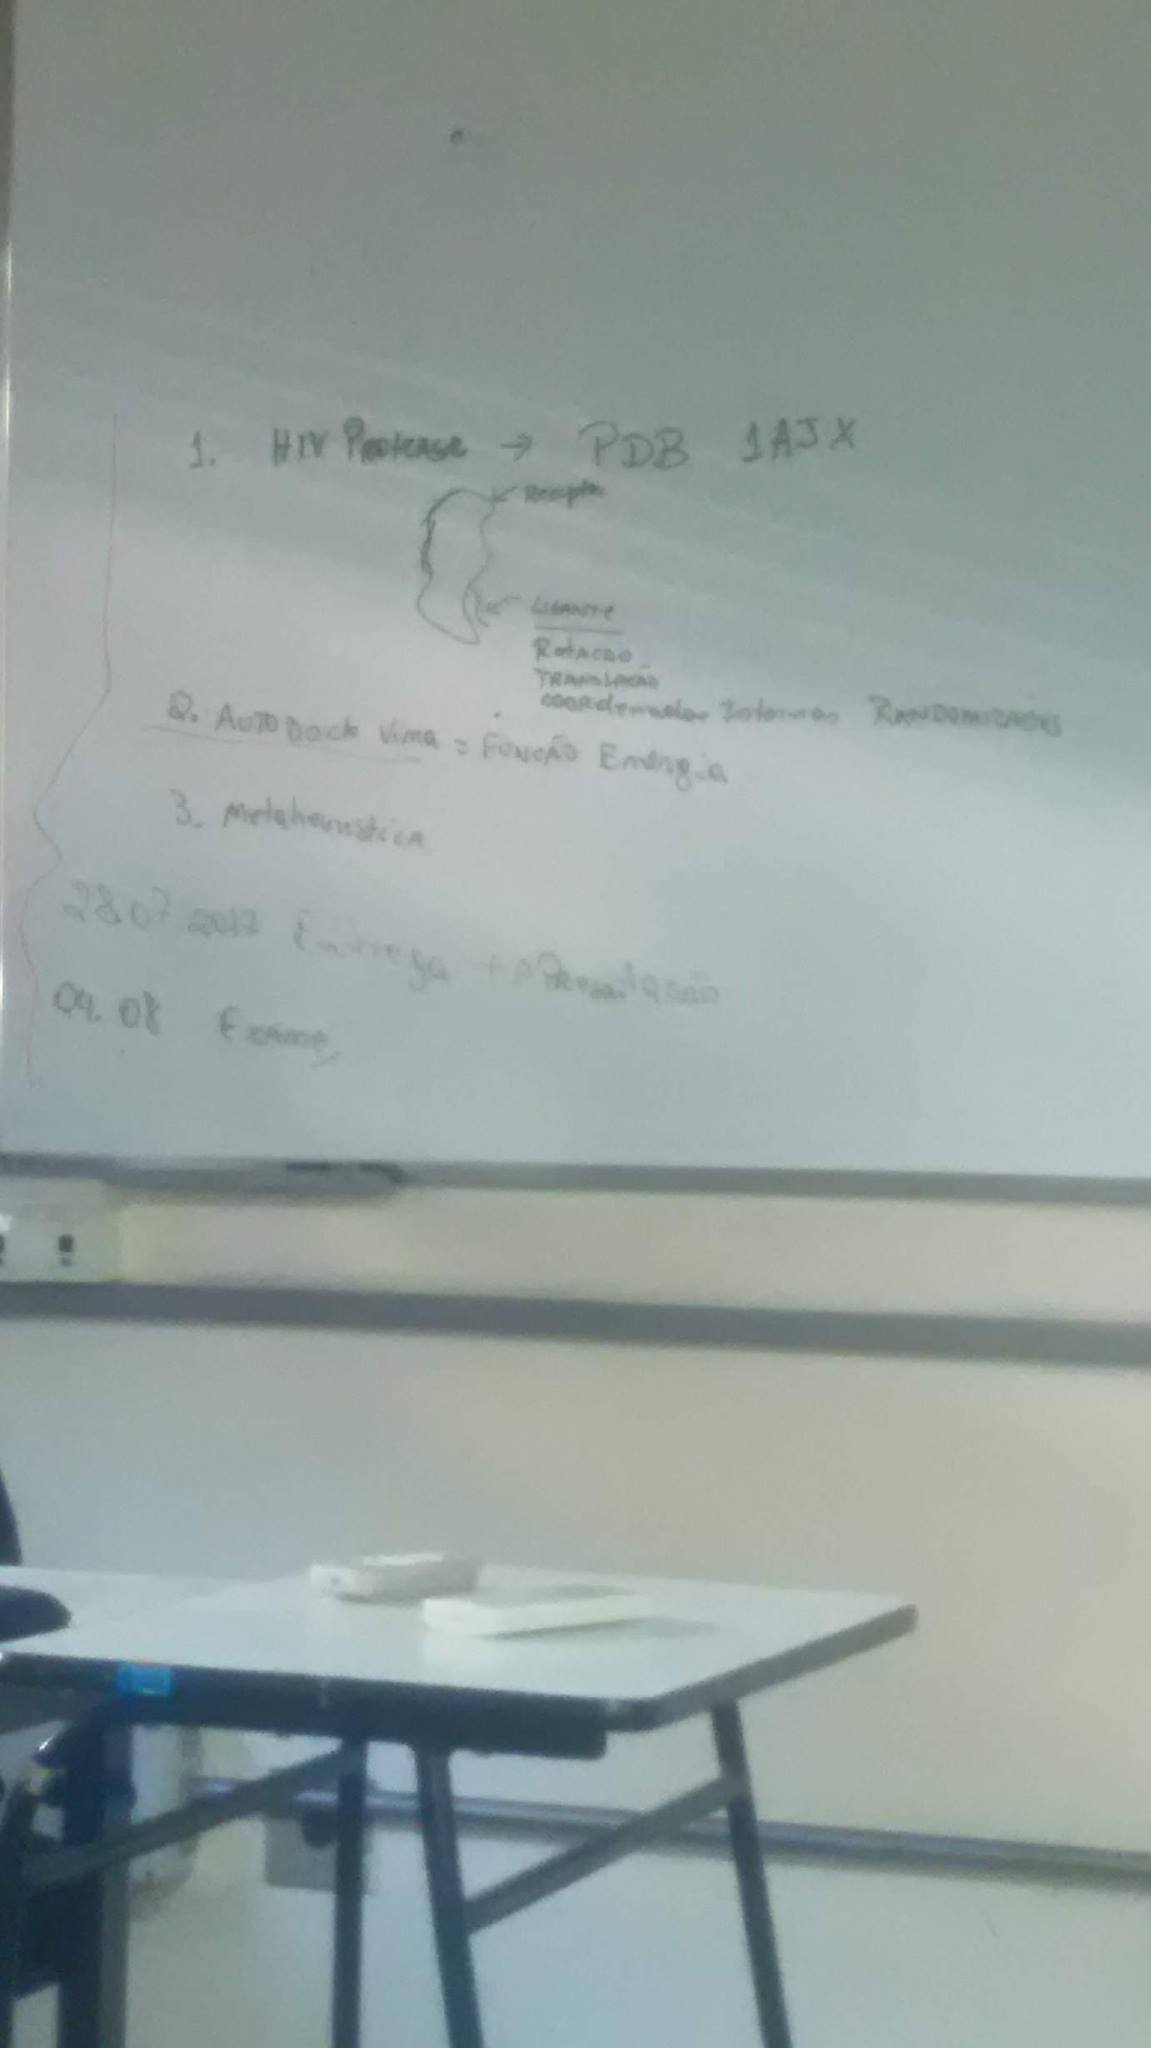 1. HIV Protease → PDB 1AJX
← Receptor
← Ligante
Rotação
Translação
Coordenadas Internas Randomizadas
2. AutoDock Vina = Função Energia
3. Metaheurística
28.07.2017 Entrega + Apresentação
04.08 Exame